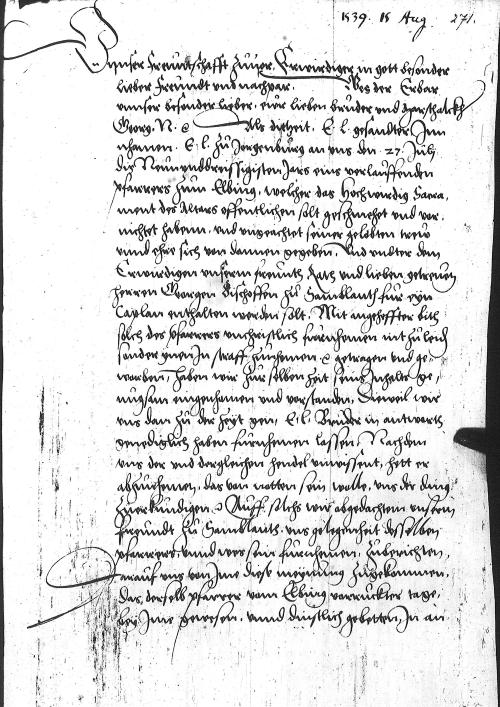 1539. 15 Aug. 271.
Vnnser Freundtschafft zuuor. Erwirdiger in gott besonder
lieber Freundt vnd nachpar. Wes der Erbar
vnnser besonder lieber, eůr lieben bruder vnd
Georg. N. ec Als dieszeit. E. L. gesandter Inn
nhamen. E. L. zu Jorgenburg an vns den 27. Julij
des Neunvndtdreissigisten Jars eins verlauffenden
pfarrers zum Elbing, welcher das Hochwirdig Sacra,
ment des Altars offentlichen solt geschmehet vnd ver,
nichtet habenn, vnd vngeachtet seiner gelobten treẅ
vnnd ehre sich von dannen gegeben, Vnd vndter dem
Erwirdigen vnserm freundt, Rath vnd lieben getreuen
herren Georgen Bischoffen zu Samblandt für eyn
Caplan enthalten werden solt. Mit angeheffter bith
solch des pfarrers vnchristlich fürnhemen nit zu leid
sonder ynen In straff zunhemen ec getragen vnd ge,
worben, haben wir zur selben zeit seins Inhalts ge,
nugsam eingenhomen vnd verstanden, Dieweil wir
vns dan zu der zeyt gen, E. L. Bruder in antwurth
genediglich haben fürnhemen lassen, Nachdem
vns der vnd dergleichen hendel vnwissent, hett er
abzunhemen, das von nötten sein wolle, vns der ding
zuerkundigen, Auff solchs wir abgedachtem vnserm
Freundt zu Samblandt, vns gelegenheit desselben
pfarrers, vnnd wes sein fürnhemen, zuberichten,
Darauf vns von Ime diese meynung zugekommen,
Das, derselb pfarrer vom Elbing verruckter tage,
bey Ime gewesen, vnnd dinstlich gebetten, In an